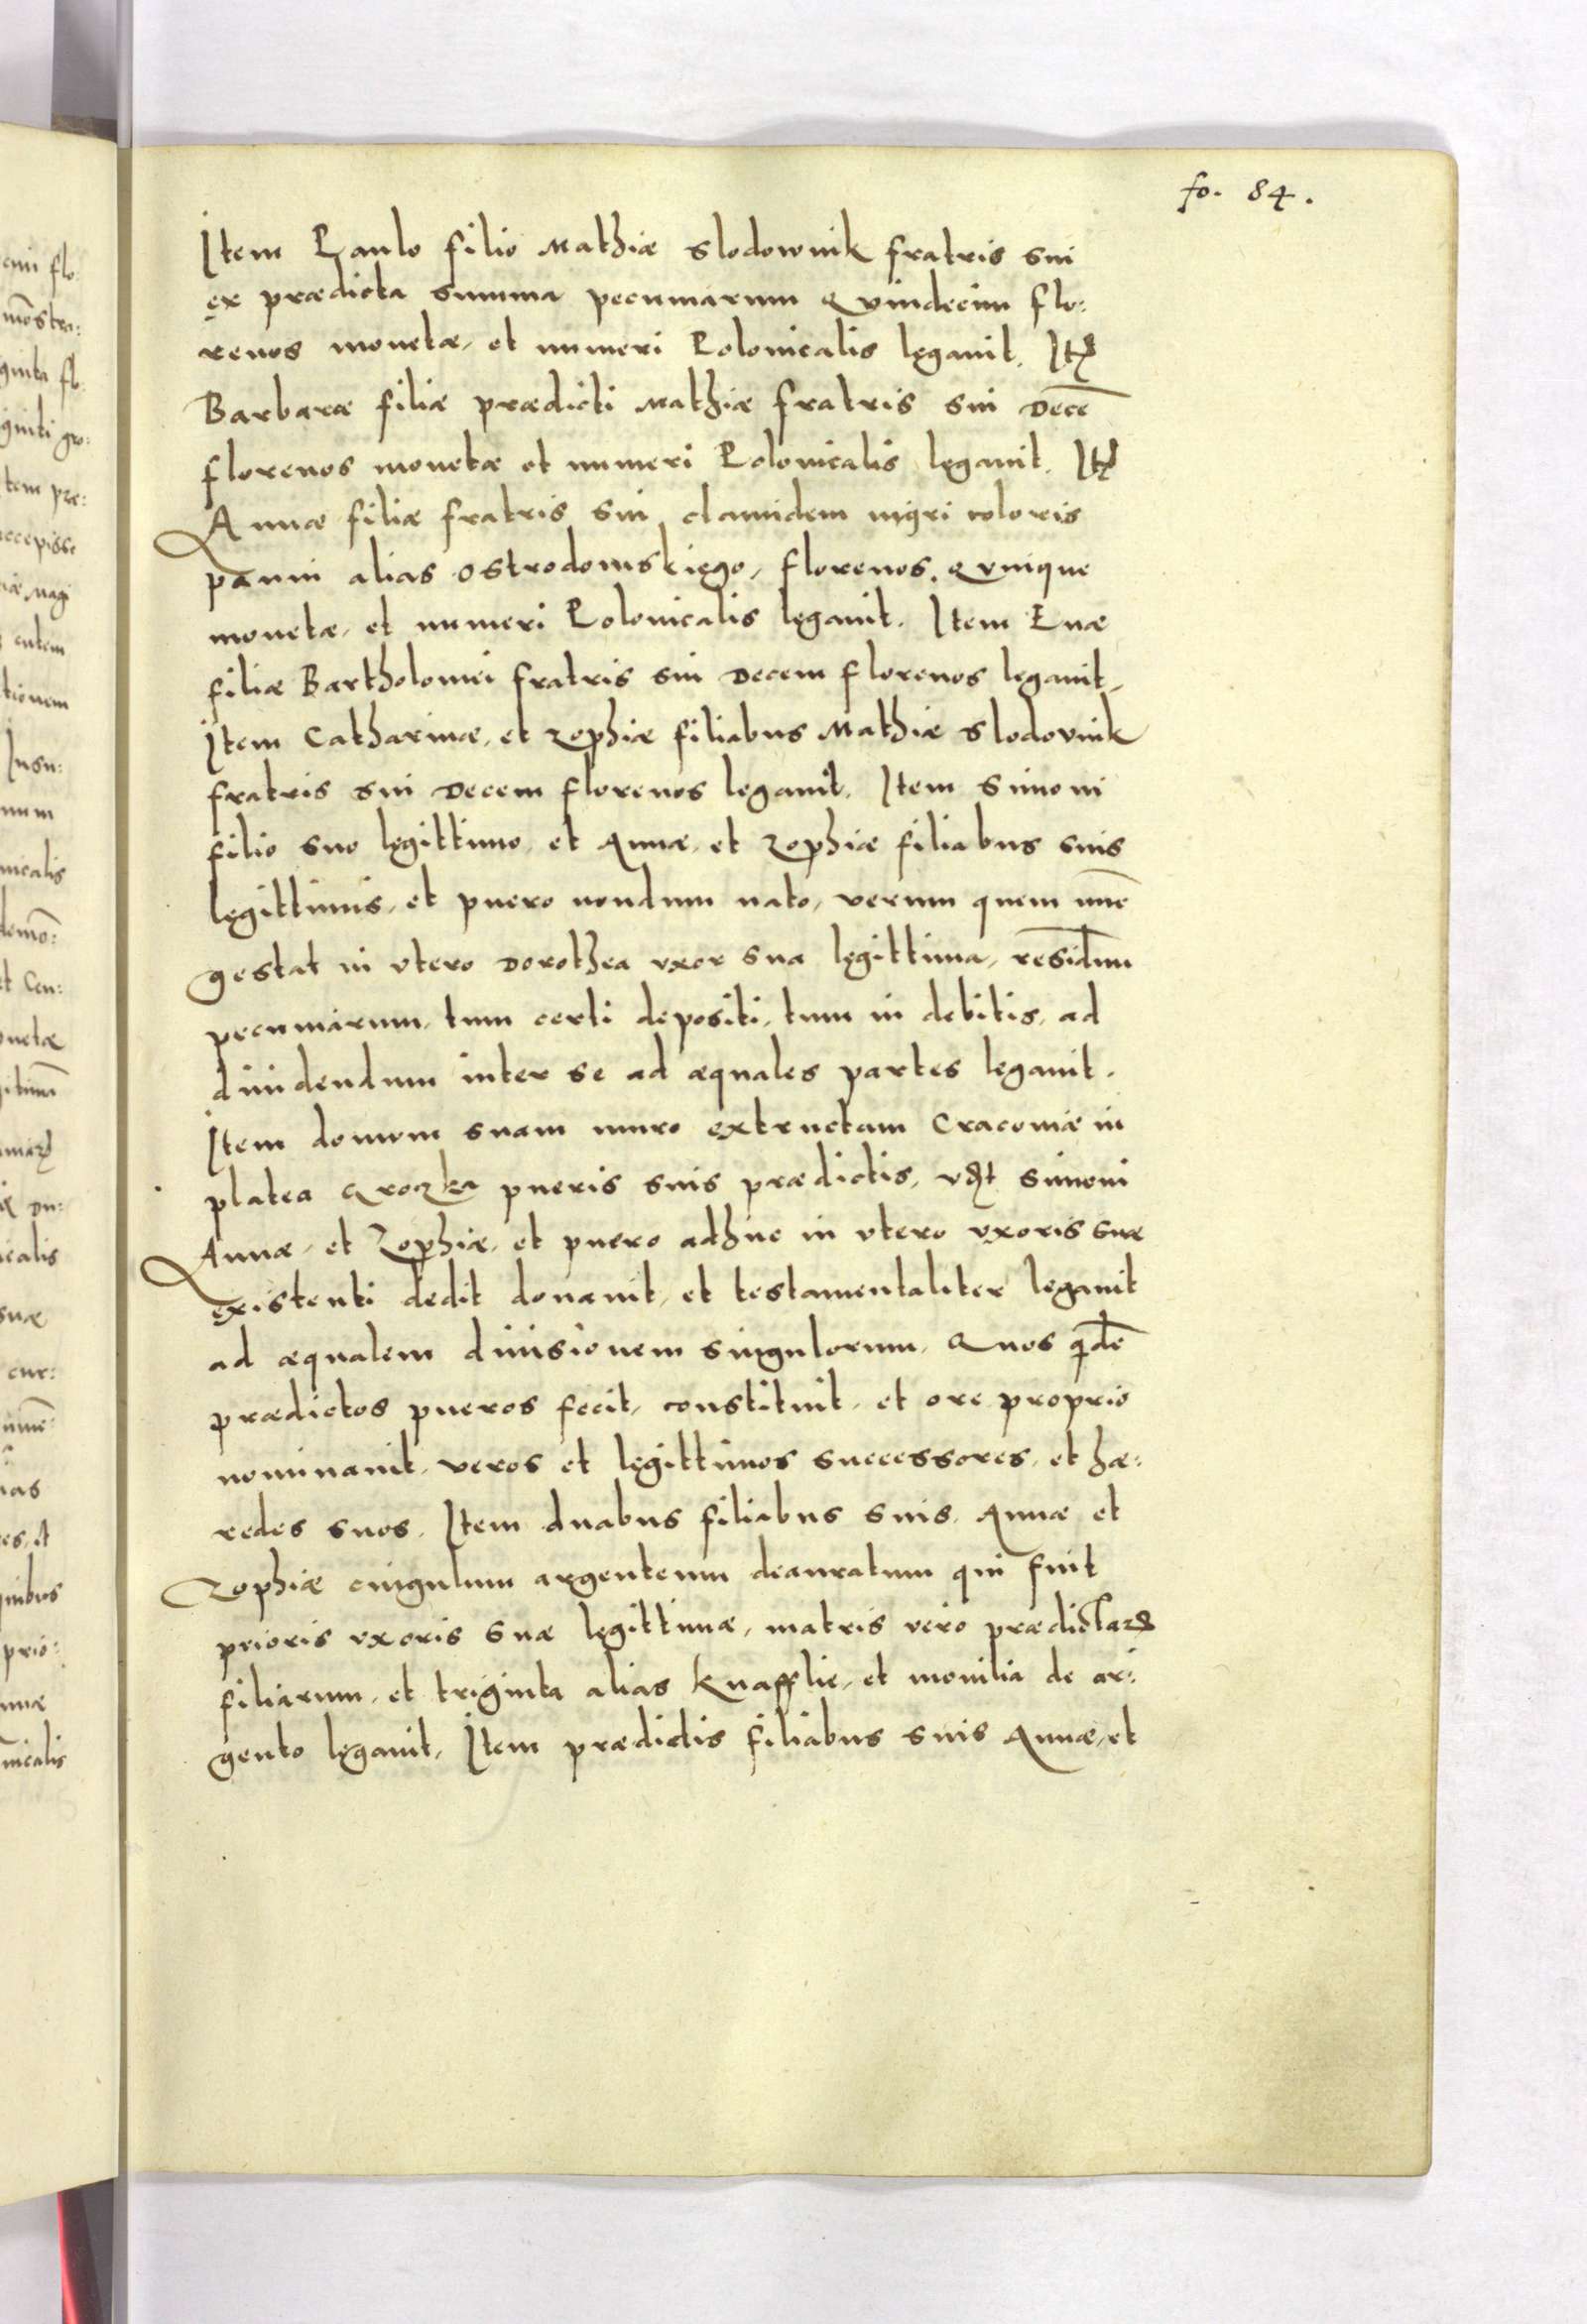 fo. 84.
Item Paulo filio Mathiæ Slodownik fratris sui
ex prædicta summa pecuniarum Quindecim flo:
renos monetæ, et numeri Polonicalis legauit. Itẽ
Barbaræ filiæ prædicti Mathiæ fratris sui Decẽ
florenos monetæ et numeri Polonicalis legauit. Itẽ
Annæ filiæ fratris sui clamidem nigri coloris
panni alias ostrodomskiego, florenos. Quinque
monetæ, et numeri Polonicalis legauit. Item Euæ
filiæ Bartholomei fratris sui Decem florenos legauit,
Item Catharinæ, et Zophiæ filiabus Mathiæ Slodovnik
fratris sui Decem florenos legauit. Item Simoni
filio suo legittimo, et Annæ, et Zophiæ filiabus suis
legittimis, et puero nondum nato, verum quem nũc
gestat in vtero Dorothea vxor sua legittima, residũm
pecuniarum, tum certi depositi, tum in debitis, ad
diuidendum inter se ad æquales partes legauit.
Item domum suam muro extructam Cracouiæ in
platea Groczka pueris suis prædictis, vꝫt Simoni
Annæ, et Zophiæ, et puero adhuc in vtero vxoris suæ
existenti dedit donauit, et testamentaliter legauit
ad æqualem diuisionem singulorum, Quos qdẽ
prædictos pueros fecit, constituit, et ore proprio
nominauit, veros et legittimos successores, et hæ:
redes suos. Item duabus filiabus suis, Annæ et
Zophiæ cingulum argenteum deauratum qui fuit
prioris vxoris suæ legittimæ, matris vero prædictaꝝ
filiarum, et triginta alias knafflie, et monilia de ar:
gento legauit, Item prædictis filiabus suis Annæ, et